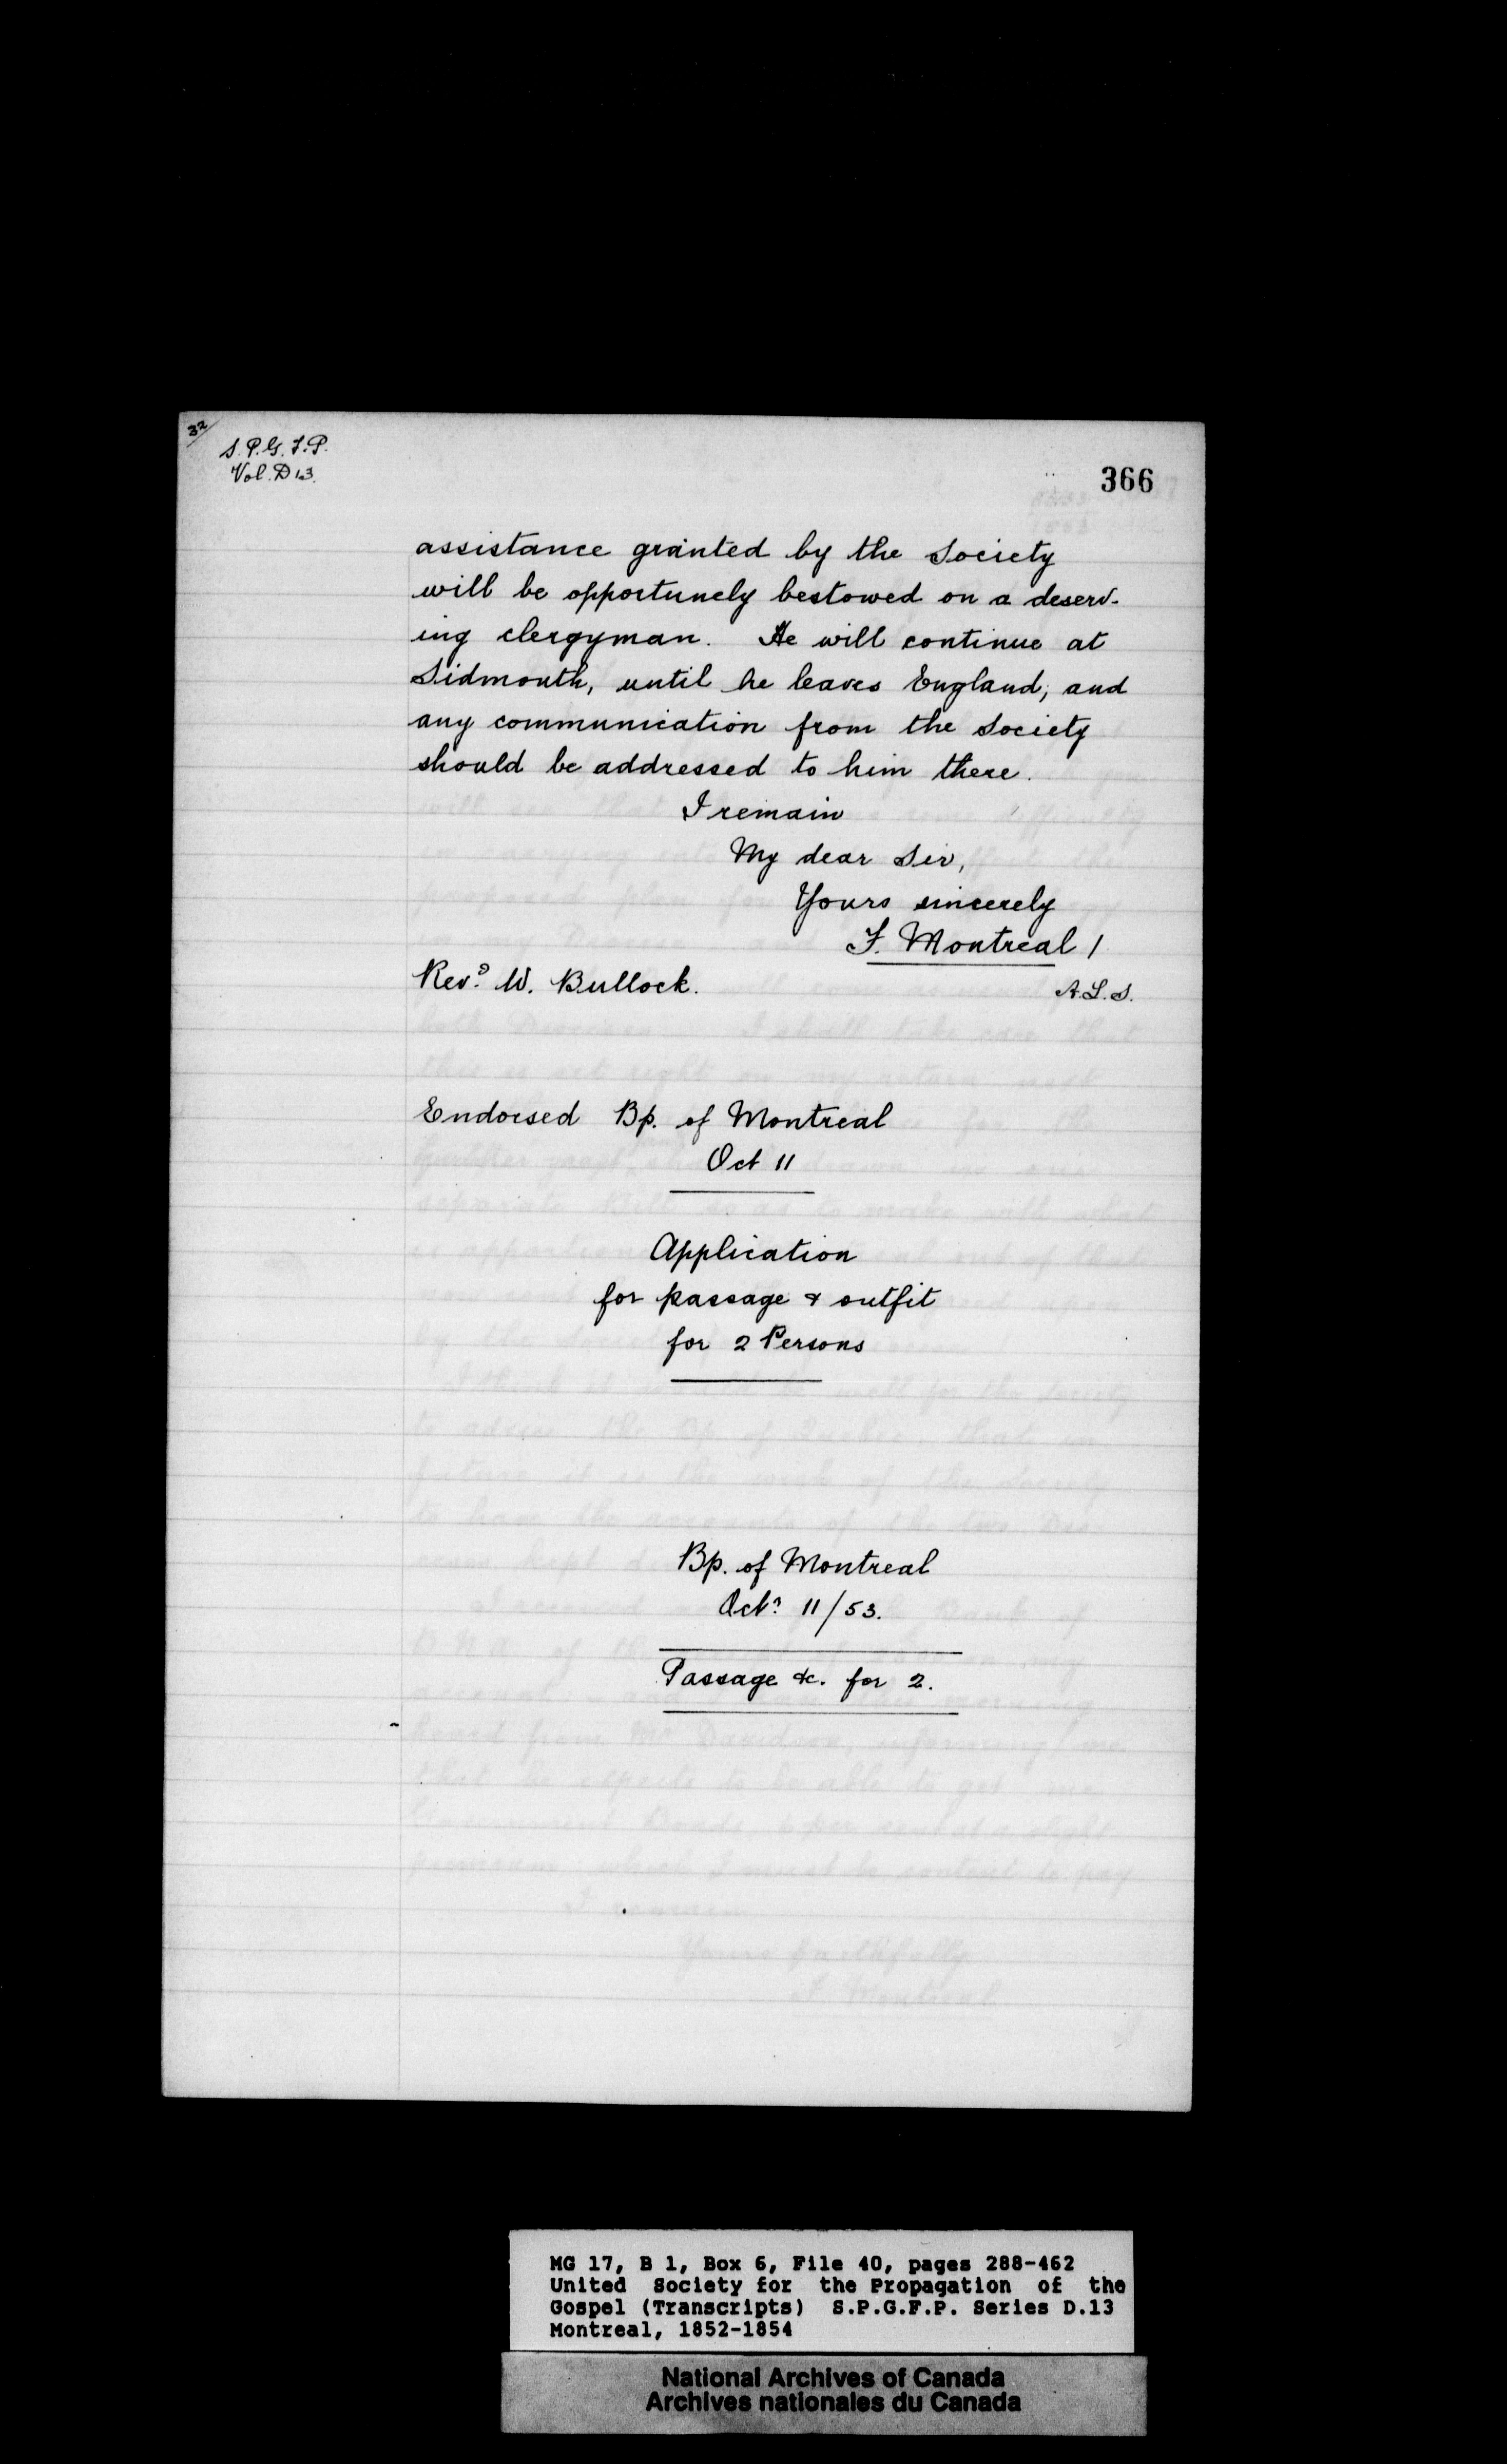 32
S.P.G.F.P.
Vol. D 13.
366
assistance granted by the Society
will be opportunely bestowed on a deserv-
ing clergyman. He will continue at
Sidmouth, until he leaves England, and
any communication from the Society
should be addressed to him there.
I remain
My dear Sir,
Yours sincerely
F. Montreal /
Revd. W. Bullock.
A.L.S.
Endorsed Bp. of Montreal
Oct 11
Application
for passage & outfit
for 2 Persons
Bp. of Montreal
Octr. 11/53.
Passage &c. for 2.
MG 17, B 1, Box 6, File 40, pages 288-462
United Society for the Propagation of the
Gospel (Transcripts) S.P.G.F.P. Series D.13
Montreal, 1852-1854
National Archives of Canada
Archives nationales du Canada